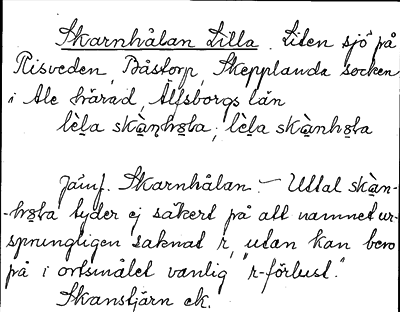 Skarnhålan Lilla. Liten sjö på
Risveden, Båstorp, Skepplanda socken
i Ale härad, Älfsborgs län
lèla skàṇhola; lèla skànhola
Jämf. Skarnhålan. – Uttal skàn-
-hola tyder ej säkert på att namnet ur-
sprungligen saknat r, utan kan bero
på i ortsmålet vanlig "r-förlust."
Skanstjärn ek.